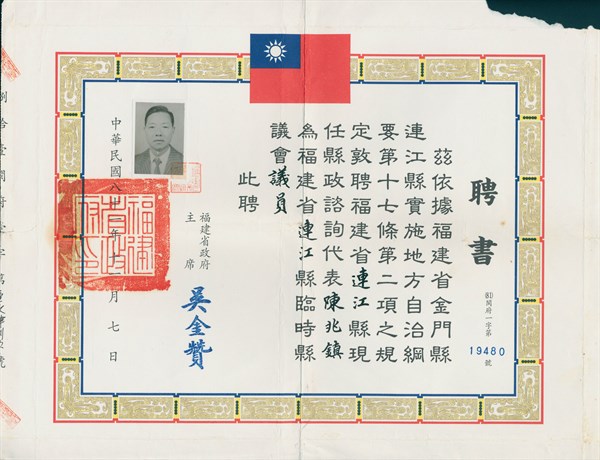 聘書
(81)閩府一字第
19480
號
茲依據福建省金門縣
連江縣實施地方自治綱
要第十七條第二項之規
定敦聘福建省連江縣現
任縣政諮詢代表陳兆鎮
為福建省連江縣臨時縣
議會議員
此聘
福建省政府
主席
吳金贊
中華民國八十一年十一月七日